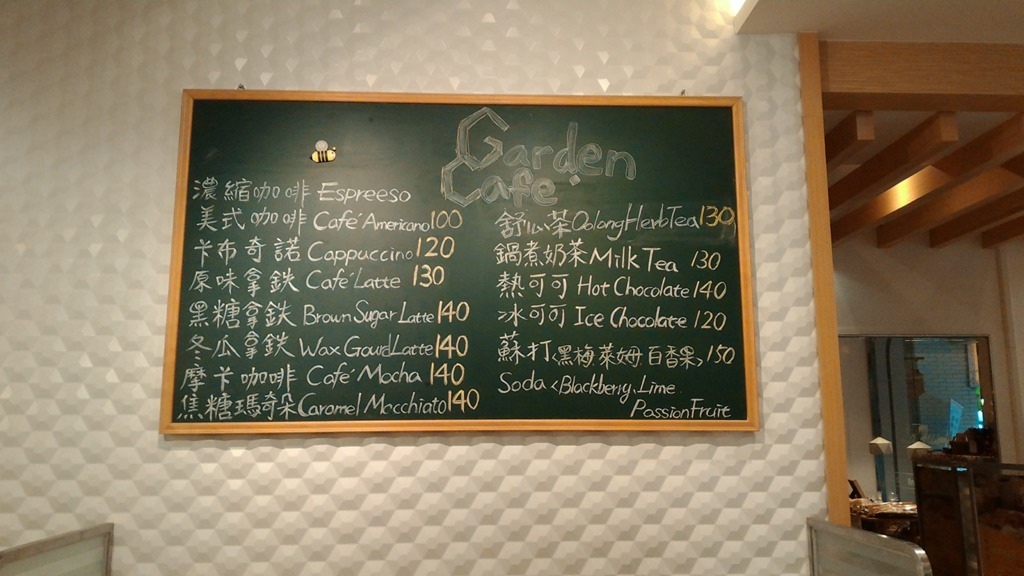 Garden
Cafe
濃縮咖啡 Espreeso
美式咖啡 Café Americano 100
卡布奇諾 Cappuccino 120
原味拿鉄 Café Latte 130
黑糖拿鉄 Brown Sugar Latte 140
冬瓜拿鉄 Wax Gourd Latte 140
摩卡咖啡 Café Mocha 140
焦糖瑪奇朵 Caramel Macchiato 140
舒心茶 Oolong Herb Tea 130
鍋煮奶茶 Milk Tea 130
熱可可 Hot Chocolate 140
冰可可 Ice Chocolate 120
蘇打<黑梅,萊姆,百香果, 150
Soda <Blackberry, Lime
Passion Fruit